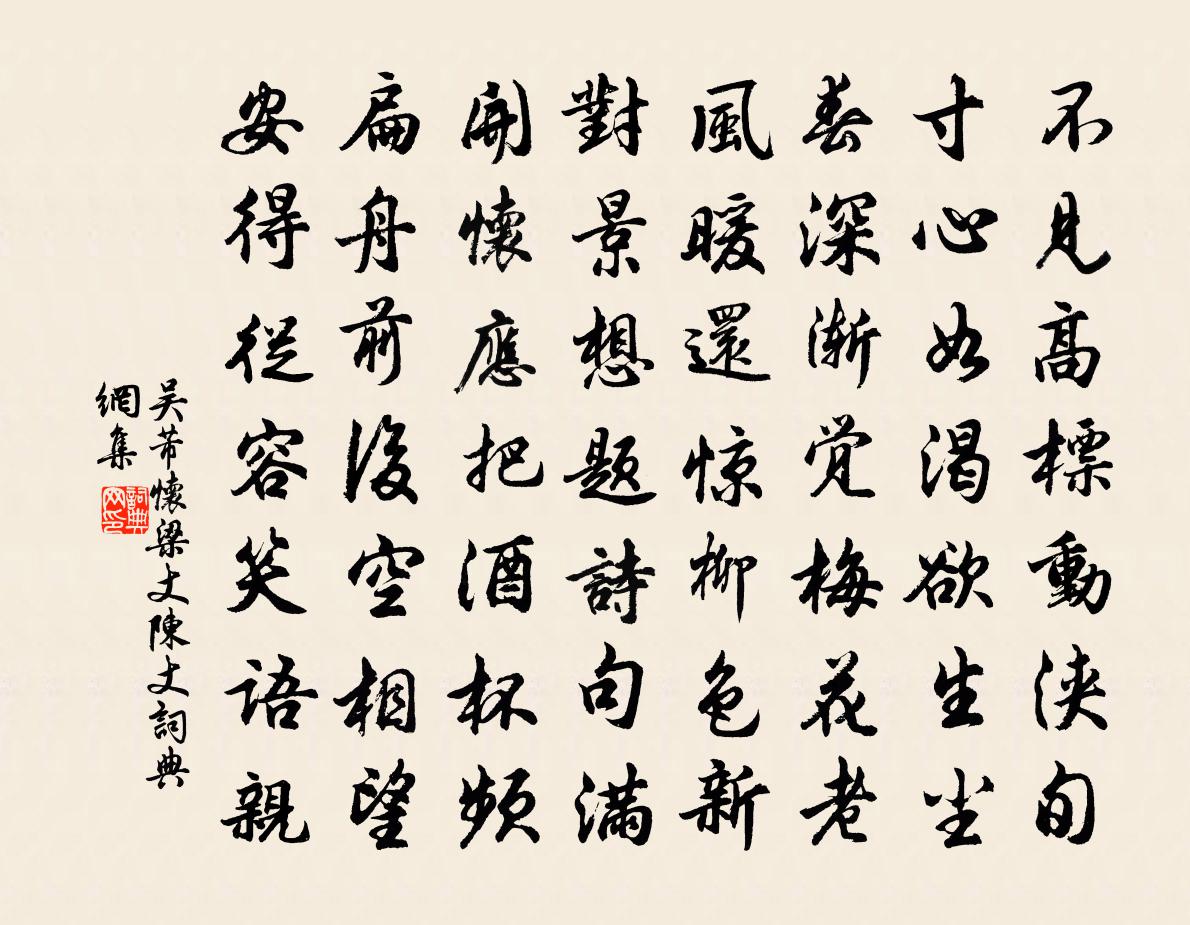 不見高標動浹旬
寸心如渴欲生尘
春深渐觉梅花老
風暖還惊柳色新
對景想题詩句满
開懷應把酒杯頻
扁舟前後空相望
安得從容笑语親
吴芾懷梁丈陳丈詞典
網集
詞典